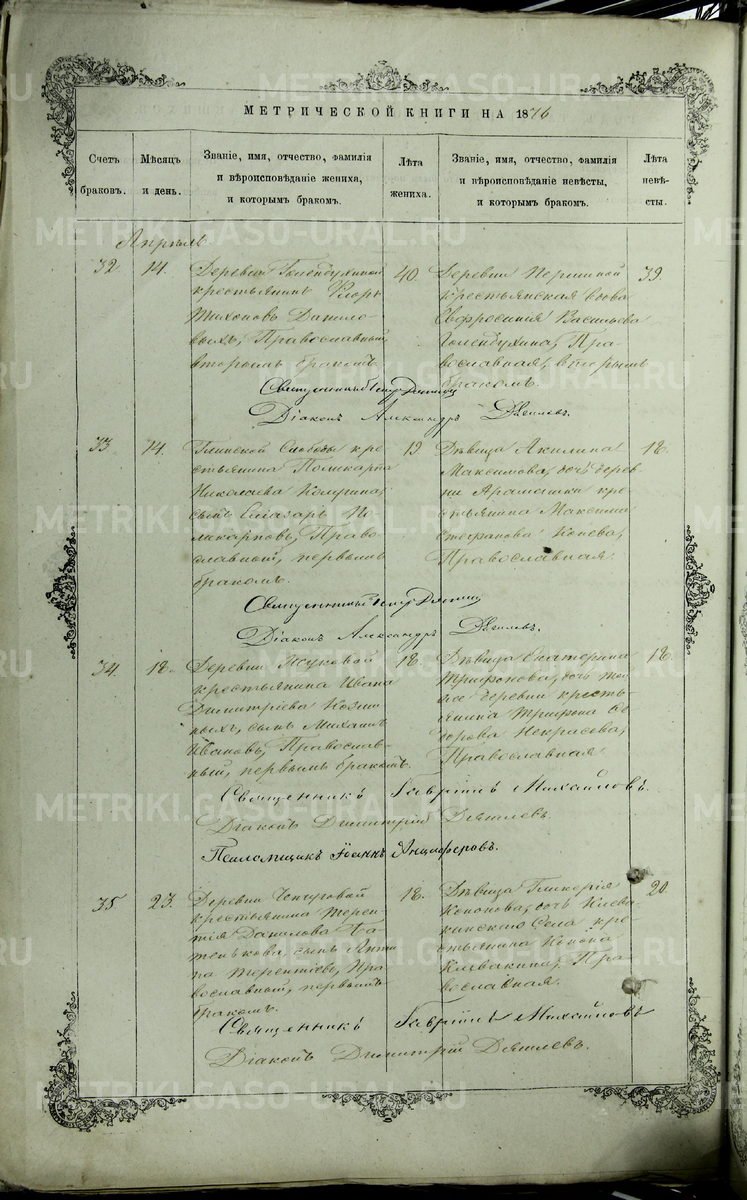 МЕТРИЧЕСКОЙ КНИГИ НА 1876
Счетъ браковъ.
Мѣсяцъ и день.
Званіе, имя, отчество, фамилія
и вѣроисповѣданіе жениха,
и которымъ бракомъ.
Лѣта жениха.
Званіе, имя, отчество, фамилія
и вѣроисповѣданіе невѣсты,
и которымъ бракомъ.
Лѣта невѣ-
сты.
Апрѣль
32
14.
Деревни Голендухиной
крестьянинъ Флоръ
Тихоновъ Данило-
выхъ, Православный,
вторымъ бракомъ.
40.
Деревни
крестьянская вдова
Евфросинія Васильева
Голендухина, Пра-
вославная, вторымъ
бракомъ.
39.
Священникъ Петръ
Діаконъ Александръ
33
14.
Глинской Слободы кре-
стьянина Поликарпа
Николаева
сынъ Елиазаръ По-
ликарповъ, Право-
славный, первымъ
бракомъ.
19.
Дѣвица Акилина
Максимова, дочь дерев
ни Арамашки кре-
стьянина Максима
Стефанова
Православная.
18.
Священникъ Петръ
Діаконъ Александръ
34.
18.
Деревни
крестьянина Ивана
Димитріева
сынъ Михаилъ
Ивановъ, Православ-
ный, первымъ бракомъ.
18.
Дѣвица Екатерина
Трифонова, дочь той
же деревни кресть-
янина Трифона
Некрасова,
Православная.
18.
Священникъ Гавріилъ Михайловъ.
Діаконъ Димитрій Дягилевъ.
Псаломщикъ Іоаннъ Анциферовъ.
35
23.
Деревни
крестьянина Терен-
тія Данилова
сынъ Анти
па Терентіевъ, Пра-
вославный, первымъ
бракомъ.
18.
Дѣвица Гликерія
Кононова, дочь Клева-
кинскаго Села кре-
стьянина Конона
Клевакина, Пра-
вославная.
20.
Священникъ Гавріилъ Михайловъ
Діаконъ Димитрій Дягилевъ.
METRIKI.GASO-URAL.RU